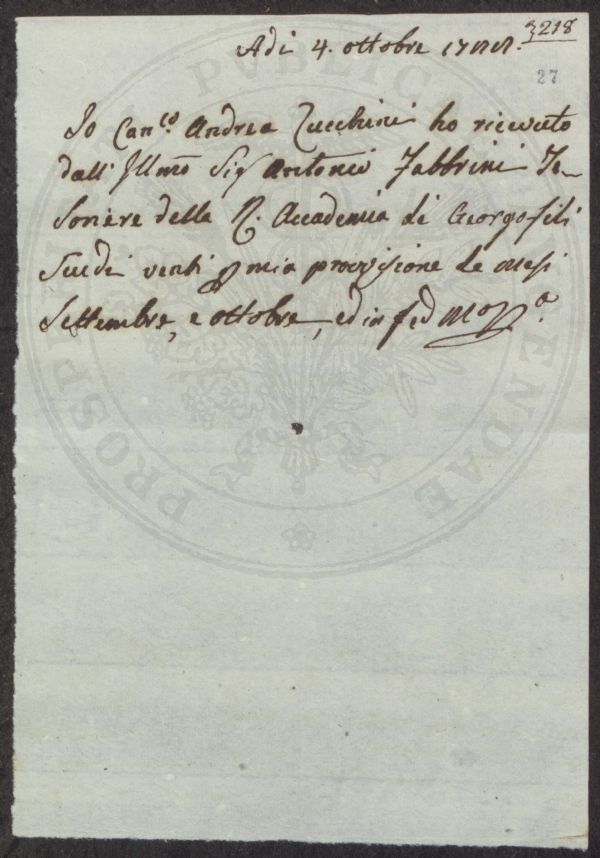 3218
Adi 4. ottobre 1788.
27
Io Can.co Andrea Zucchini ho ricevuto
dall' Illmo Sig Antonio Fabbrini Te-
soriere della R. Accademia di Georgofili
Scudi venti p mia provvisione de mesi
Settembre, e ottobre, ed in fed Mo pa
PROSPERITATI PUBLICAE AUGENDAE